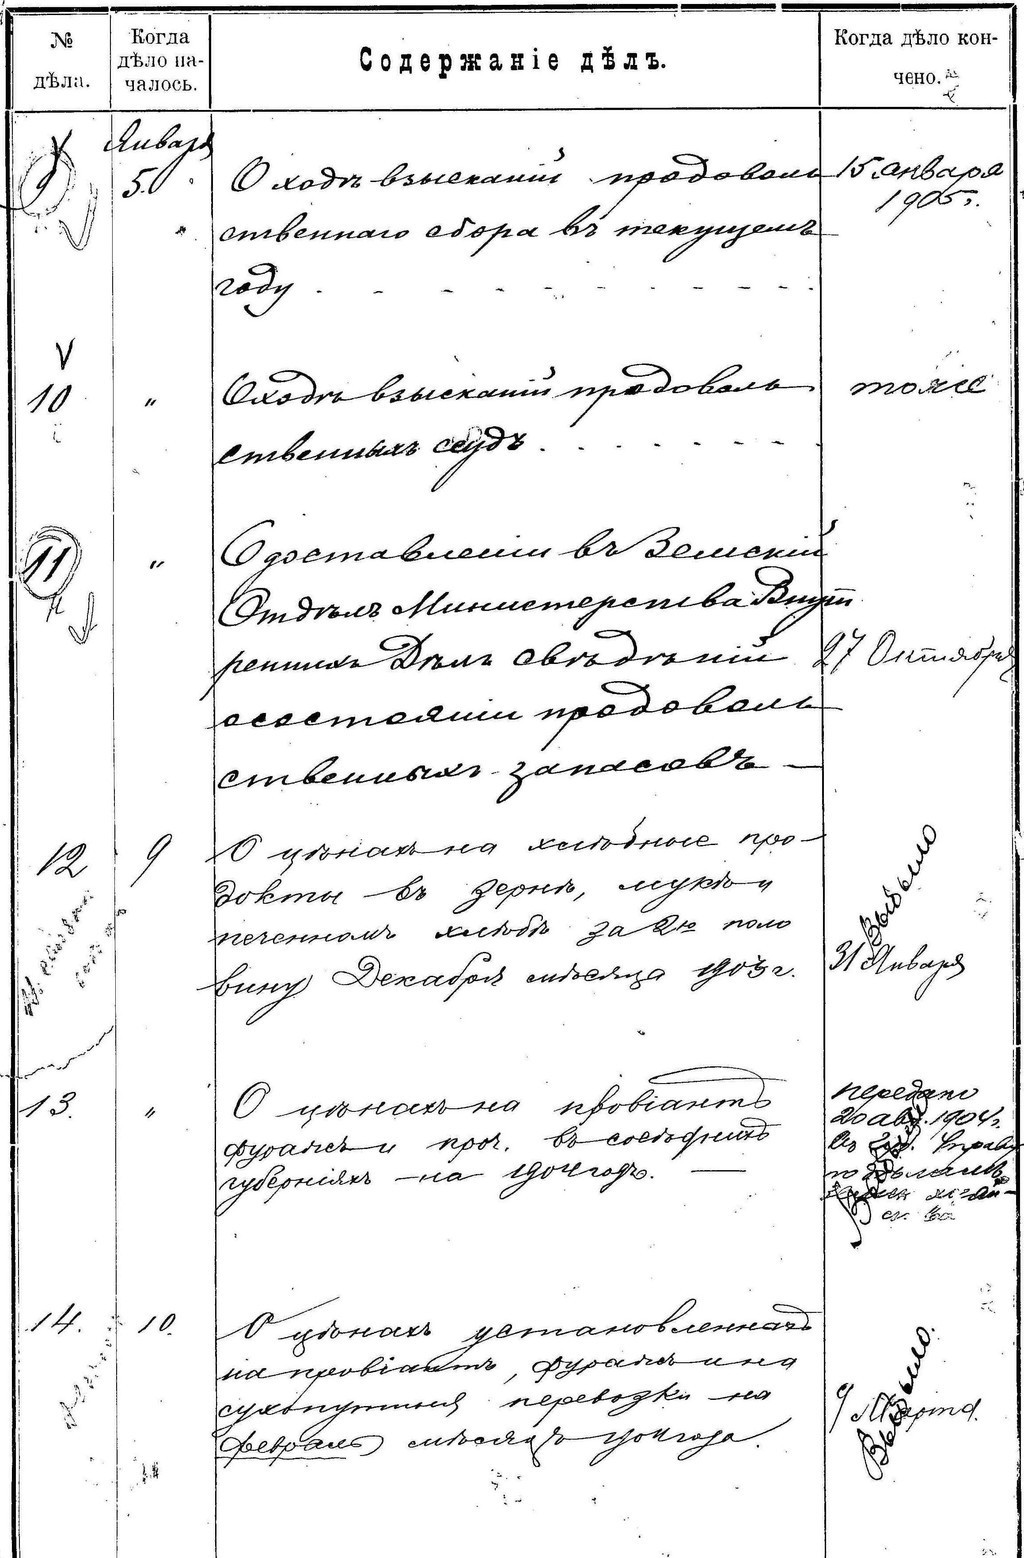 № дѣла.
Когда дѣло на-
чалось.
Содержаніе дѣлъ.
Когда дѣло кон-
чено.
Января
9
5.
О ходѣ взысканій продоволь
ственнаго сбора въ текущемъ
году
15 января
1905 г.
10
"
О ходѣ взысканій продоволь
ственныхъ ссудъ
тоже
11
"
О доставленіи въ Земскій
Отдѣлъ Министерства Внут
реннихъ Дѣлъ свѣдѣній
о состояніи продоволь
ственныхъ запасовъ —
27 Октября
12
9
О цѣнахъ на хлѣбные про-
дукты въ зернѣ, мукѣ и
печенномъ хлѣбѣ за 2ю поло
вину Декабря мѣсяца 1903 г.
Выбыло
31 Января
13.
"
О цѣнахъ на провіантъ
фуражъ и проч. въ сосѣднихъ
губерніяхъ на 1904 годъ. —
передано
20 авг. 1904 г.
14.
10.
О цѣнахъ установленныхъ
на провіантъ, фуражъ и на
сухопутныя перевозки на
февраль мѣсяцъ 1904 года.
Выбыло.
9 Марта.